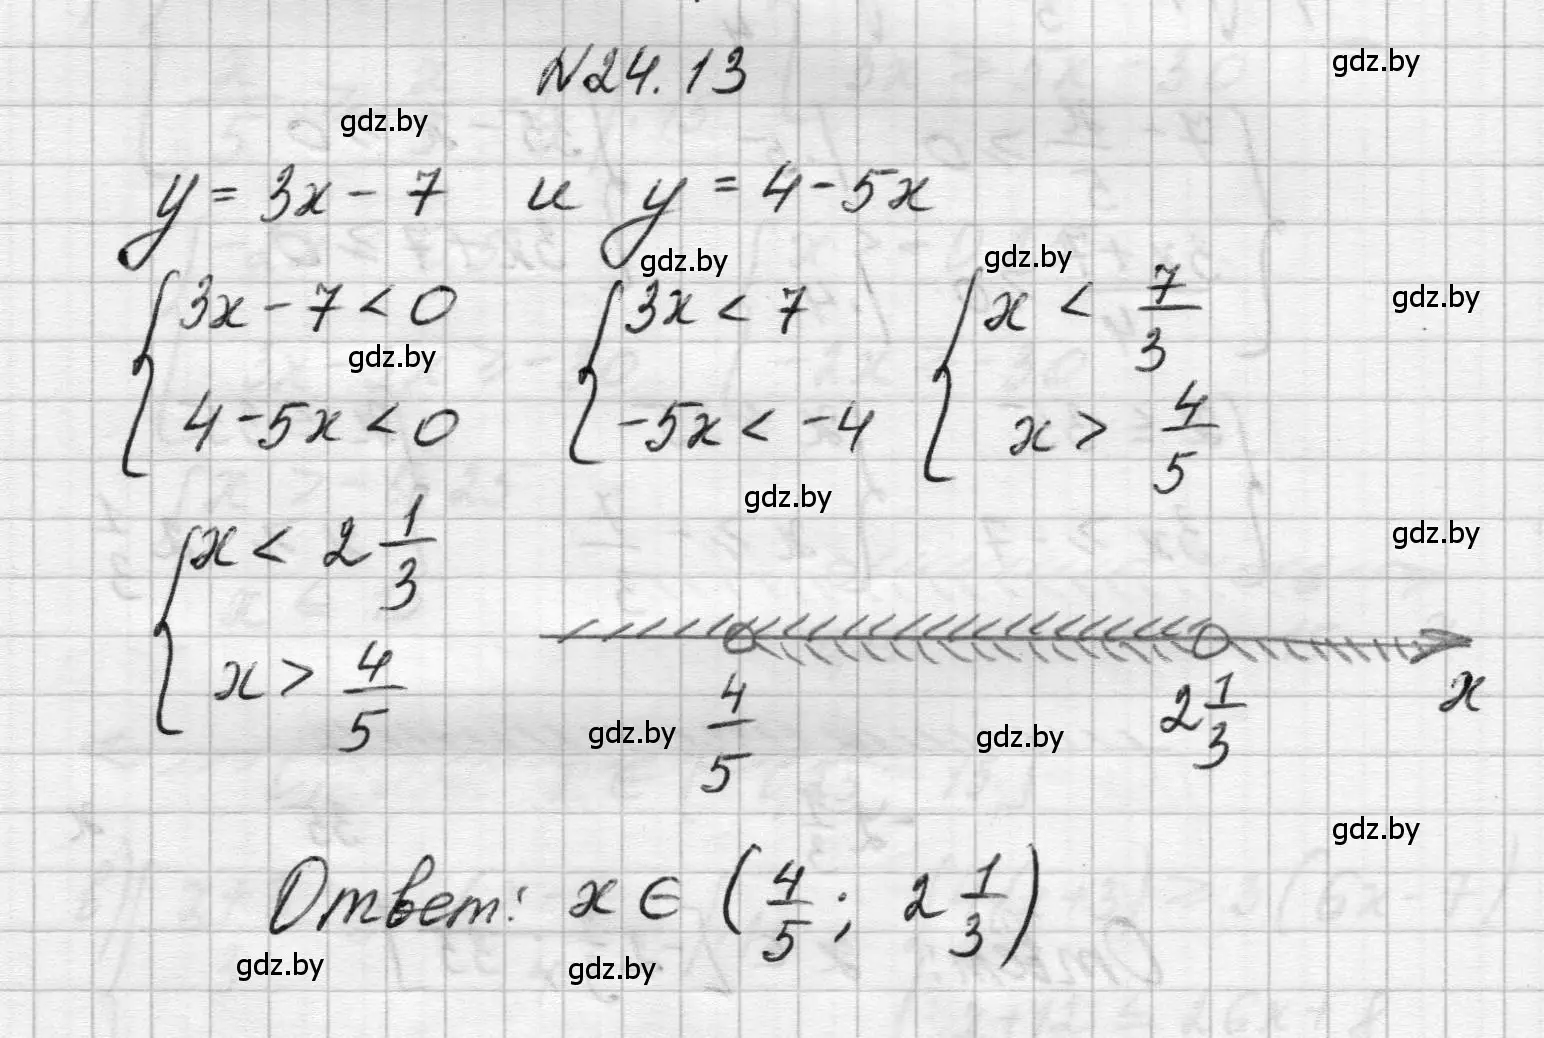 N24.13
y = 3x - 7 и y = 4 - 5x
{ 3x - 7 < 0 { 3x < 7 { x < 7/3
{ 4 - 5x < 0 { -5x < -4 { x > 4/5
{ x < 2 1/3
{ x > 4/5
4/5 2 1/3 x
Ответ: x ∈ (4/5; 2 1/3)
gdz.by
gdz.by
gdz.by
gdz.by
gdz.by
gdz.by
gdz.by
gdz.by
gdz.by
gdz.by
gdz.by
gdz.by
gdz.by